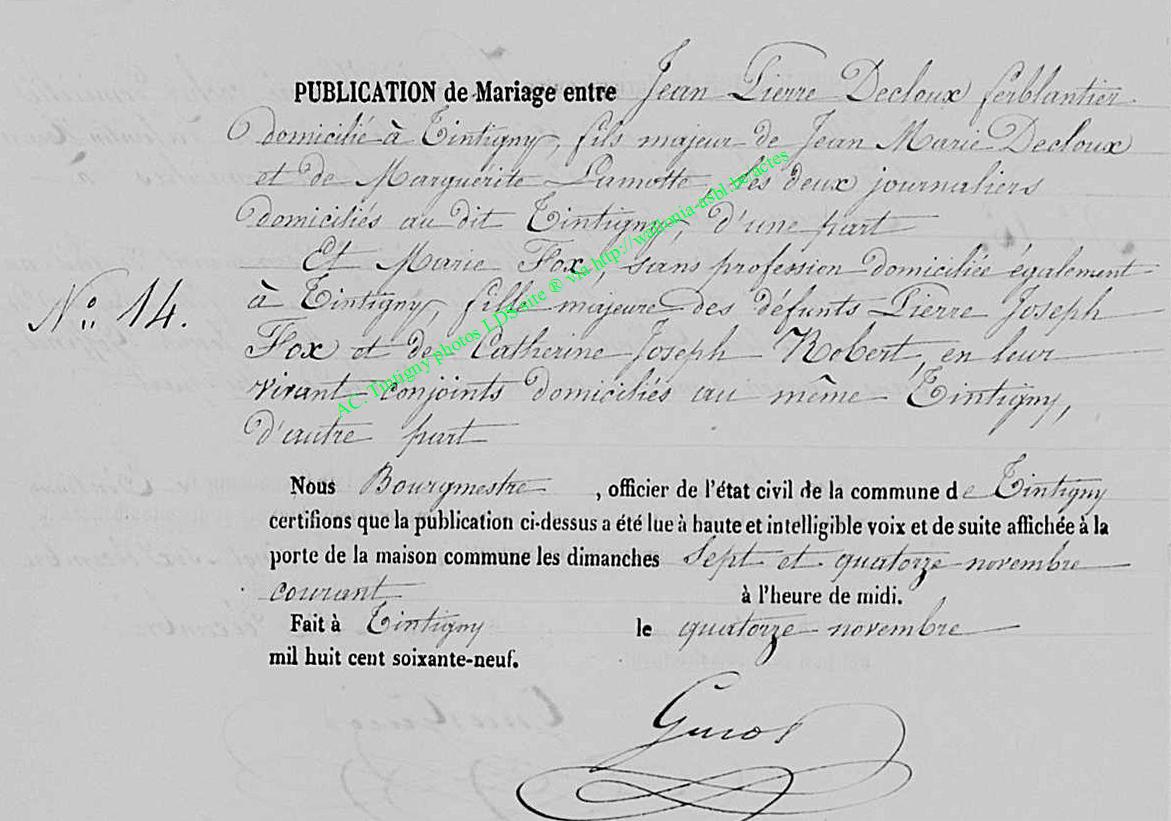 PUBLICATION de Mariage entre Jean Pierre Decloux ferblantier
domicilié à Tintigny, fils majeur de Jean Marie Decloux
et de Marguerite Lamotte, les deux journaliers
domiciliés au dit Tintigny, d'une part
Et Marie Fox, sans profession domiciliée également
à Tintigny, fille majeure des défunts Pierre Joseph
N.o 14.
Fox et de Catherine Joseph Robert, en leur
vivant conjoints domiciliés au même Tintigny,
d'autre part
Nous Bourgmestre, officier de l'état civil de la commune de Tintigny
certifions que la publication ci-dessus a été lue à haute et intelligible voix et de suite affichée à la
porte de la maison commune les dimanches sept et quatorze novembre
courant à l'heure de midi.
Fait à Tintigny le quatorze novembre
mil huit cent soixante-neuf.
AC. Tintigny photos LDS site ® via http://wallonia-asbl.be/actes